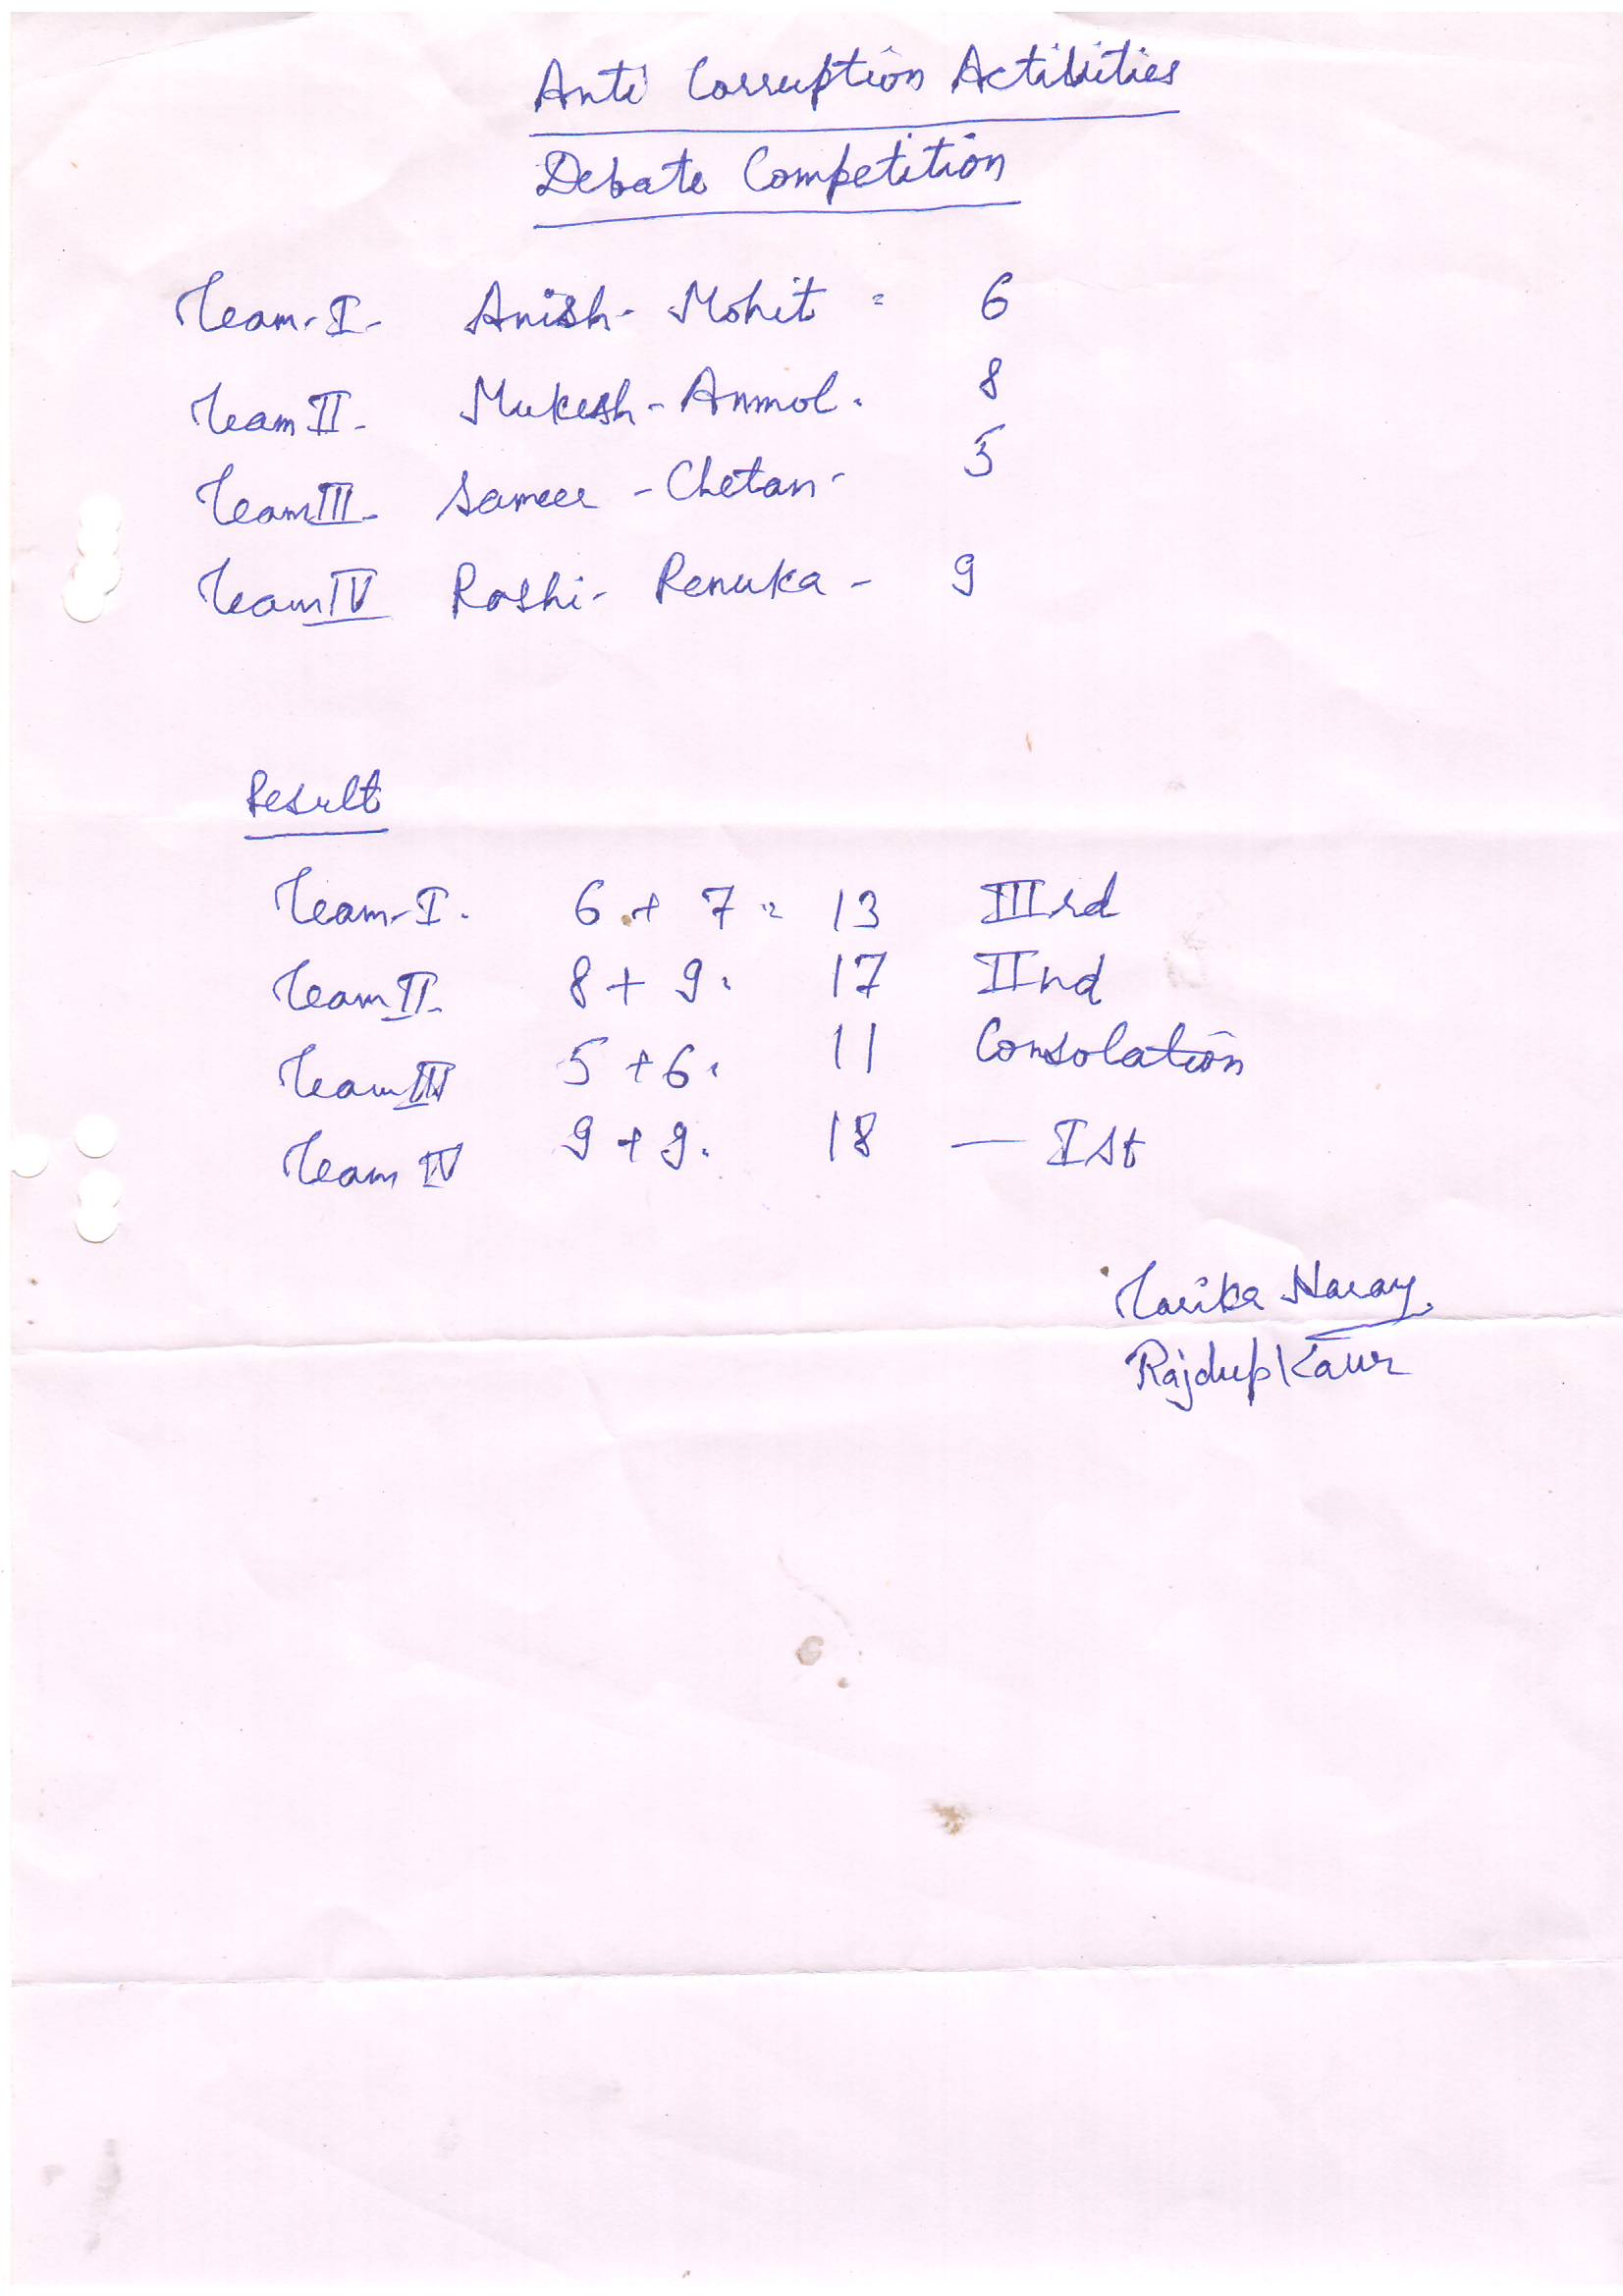 Anti Corruption Activities
Debate Competition
Team-I- Anish- Mohit = 6
Team II- Mukesh- Anmol. 8
Team III- Sameer - Chetan- 5
Team IV Rashi- Renuka - 9
Result
Team-I. 6 + 7 = 13 IIIrd
Team II- 8 + 9. 17 IInd
Team III 5 + 6. 11 Consolation
Team IV 9 + 9. 18 — Ist
Tarika
Rajdeep Kaur